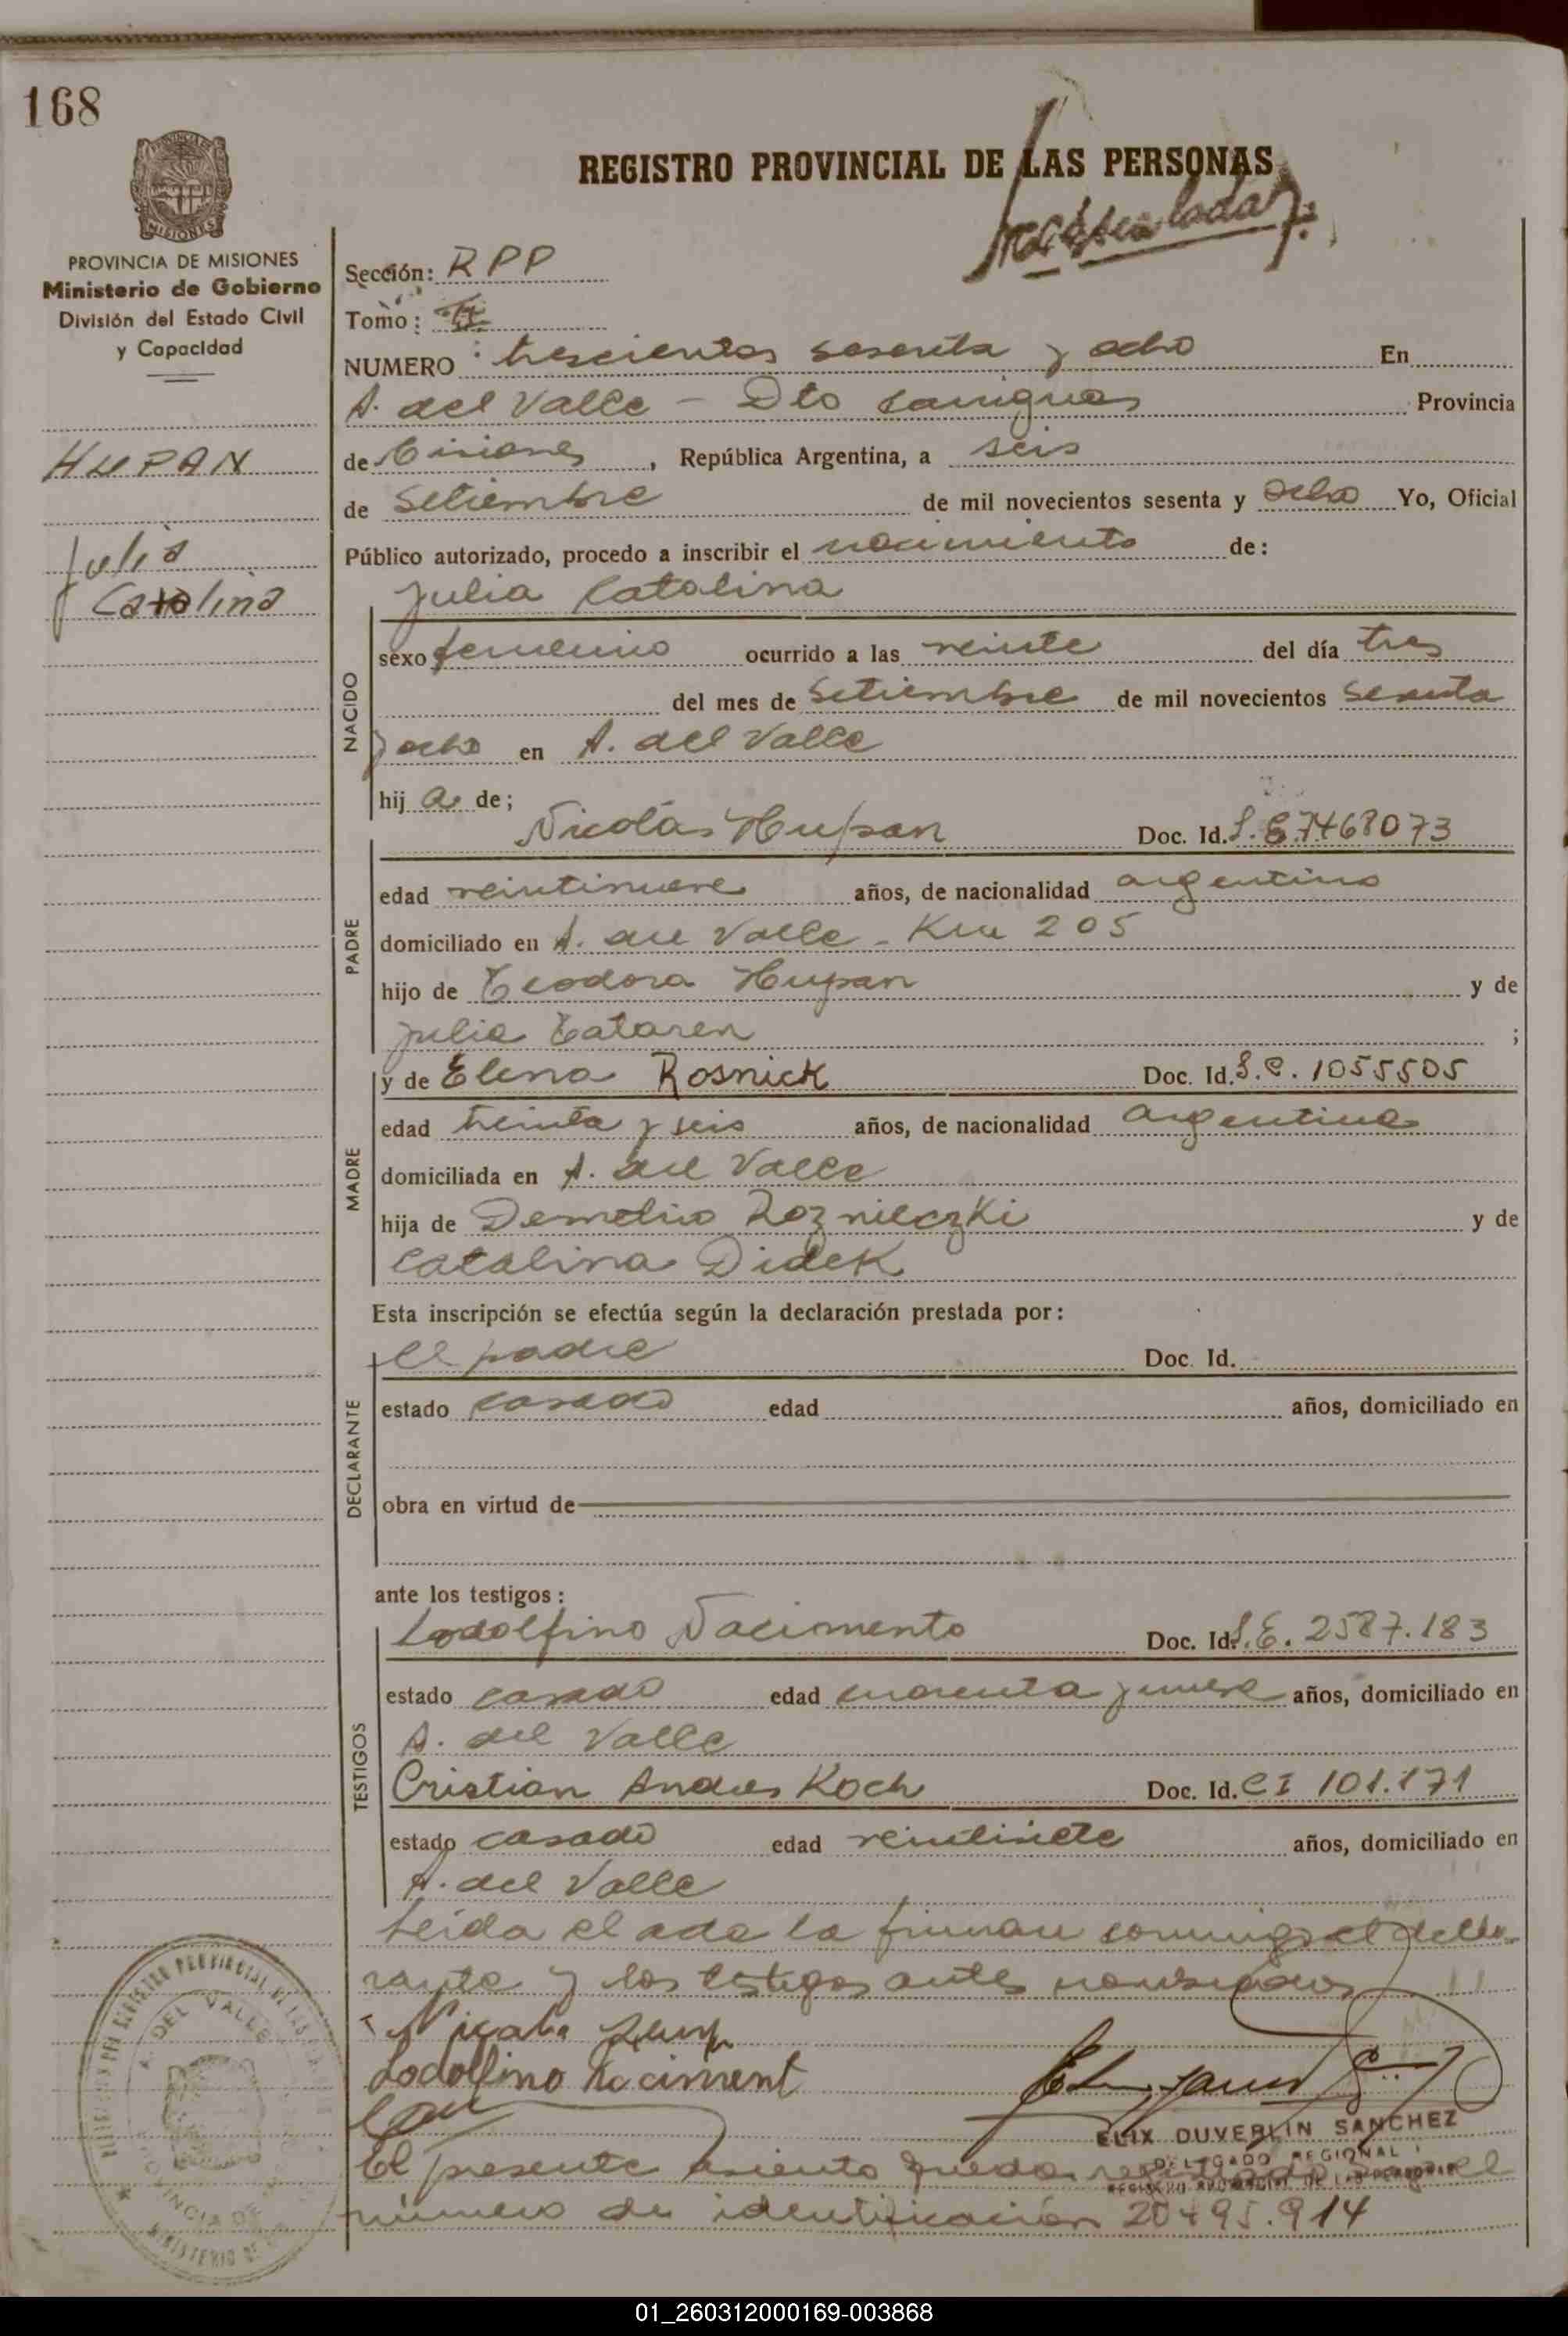 168
REGISTRO PROVINCIAL DE LAS PERSONAS
MISIONES
PROVINCIA DE MISIONES
Ministerio de Gobierno
División del Estado Civil
y Capacidad
HUPAN
Julia
Catalina
Sección: RPP
Tomo: II
NUMERO: trescientos sesenta y ocho En
A. del Valle - Dto Cainguas Provincia
de Misiones, República Argentina, a seis
de Setiembre de mil novecientos sesenta y ocho Yo, Oficial
Público autorizado, procedo a inscribir el nacimiento de:
Julia Catalina
NACIDO
sexo femenino ocurrido a las veinte del día tres
del mes de Setiembre de mil novecientos sesenta
y ocho en A. del Valle
hij a de;
PADRE
Nicolás Hupan Doc. Id. L.E 7468073
edad veintinueve años, de nacionalidad argentino
domiciliado en A. del Valle - Km 205
hijo de Teodora Hupan y de
Julia Tataren ;
MADRE
y de Elena Rosnick Doc. Id. L.C. 1055505
edad treinta y seis años, de nacionalidad argentina
domiciliada en A. del Valle
hija de Demetrio Roznieczki y de
Catalina Didek
Esta inscripción se efectúa según la declaración prestada por:
DECLARANTE
el padre Doc. Id.
estado casado edad años, domiciliado en
obra en virtud de
ante los testigos:
TESTIGOS
Lodolfino Nacimento Doc. Id. L.E. 2587.183
estado casado edad cuarenta y nueve años, domiciliado en
A. del Valle
Cristian Andres Koch Doc. Id. CI 101.171
estado casado edad veintisiete años, domiciliado en
A. del Valle
Leida el acta la firman conmigo el decla-
rante y los testigos antes nombrados
Lodolfino Naciment
ELIX DUVERLIN SANCHEZ
DELEGADO REGIONAL
REGISTRO PROVINCIAL DE LAS PERSONAS
El presente asiento queda registrado con el
número de identificación 20495.914
A. DEL VALLE
PROVINCIA DE
MINISTERIO DE
01_260312000169-003868